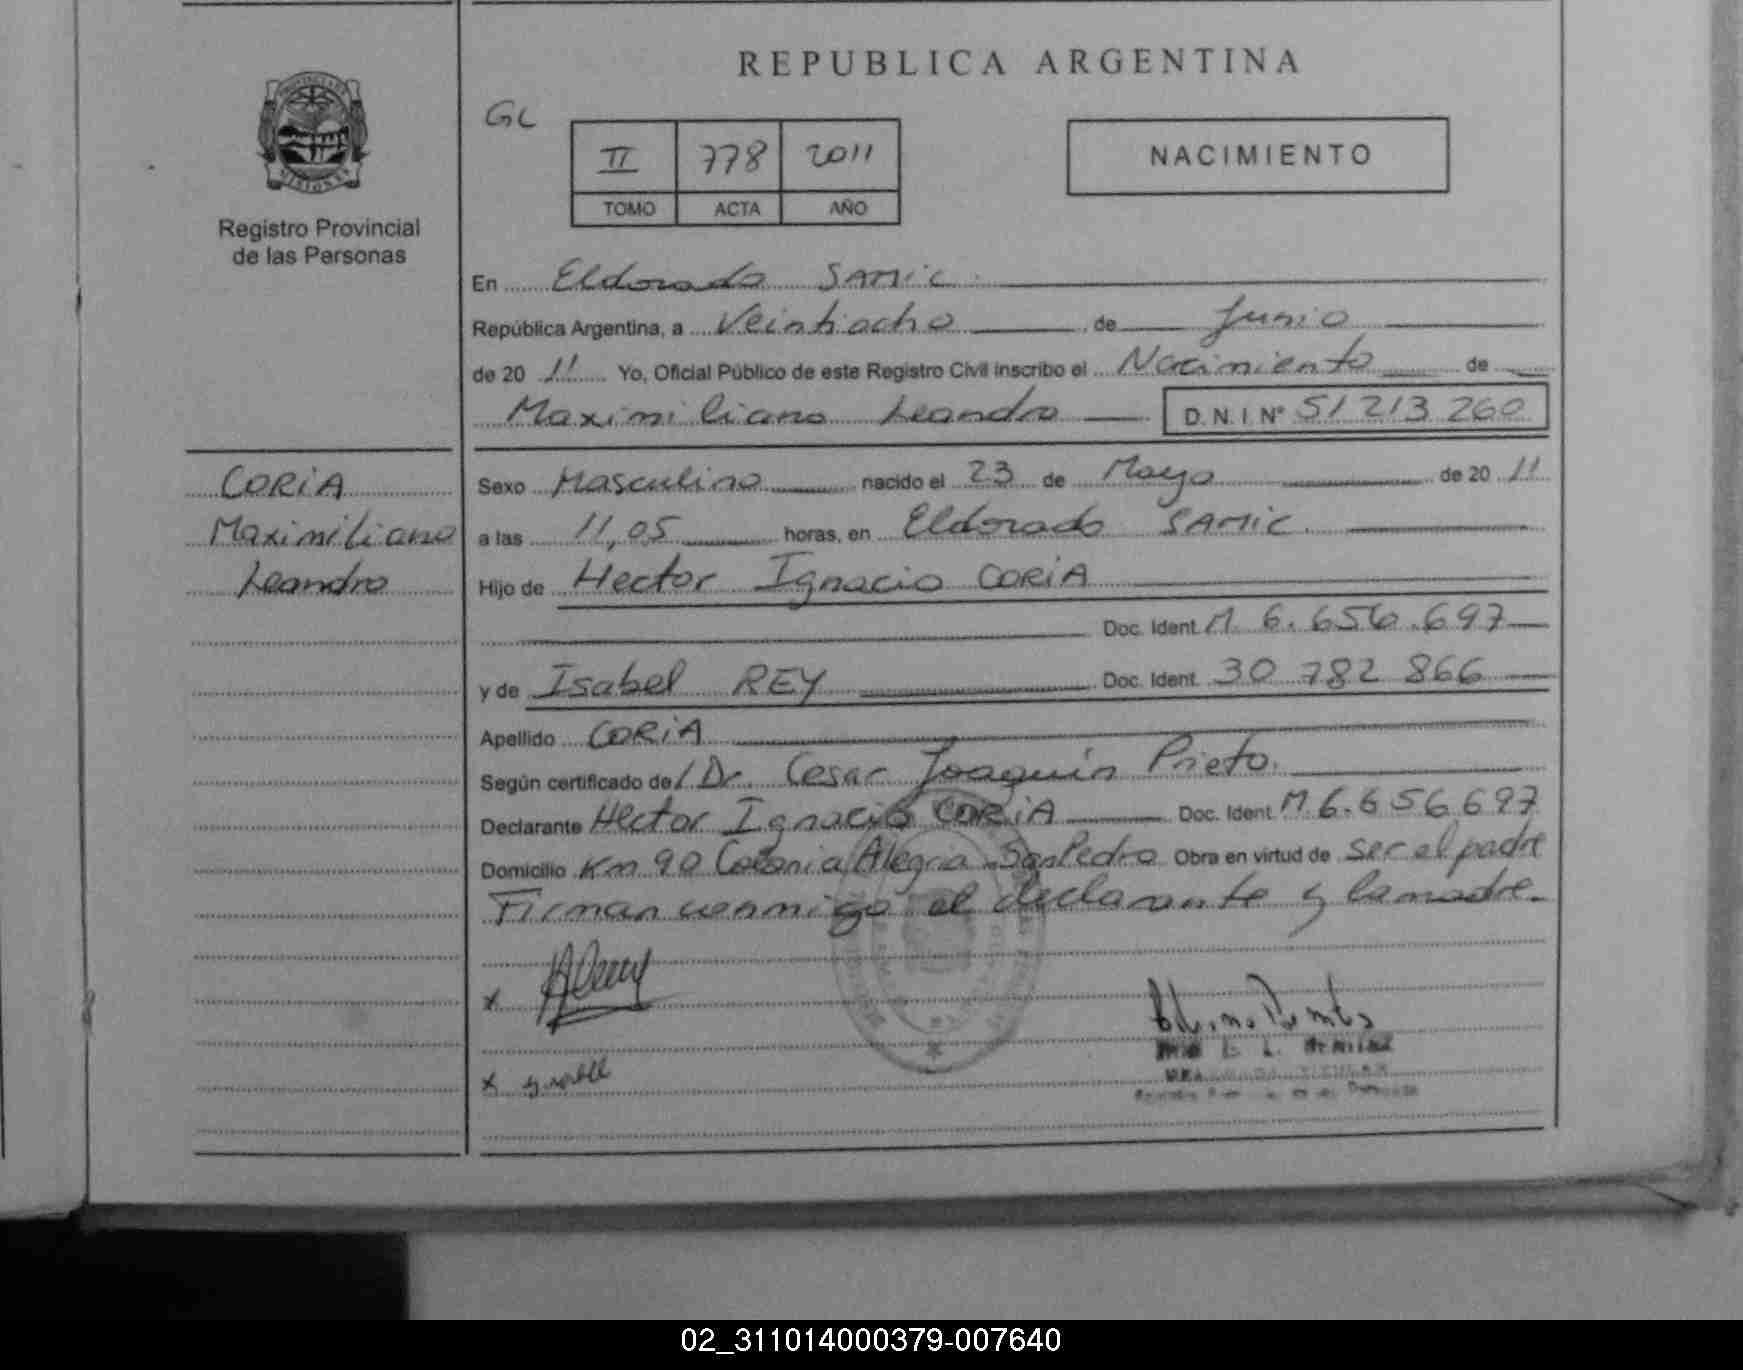 REPUBLICA ARGENTINA
GL
II 778 2011
TOMO ACTA AÑO
NACIMIENTO
MISIONES
Registro Provincial
de las Personas
En Eldorado SAMIC
República Argentina, a Veintiocho de Junio
de 20 11 Yo, Oficial Público de este Registro Civil inscribo el Nacimiento de
Maximiliano Leandro D. N. I. Nº 51 213 260
CORIA
Maximiliano
Leandro
Sexo Masculino nacido el 23 de Mayo de 20 11
a las 11,05 horas, en Eldorado SAMIC
Hijo de Hector Ignacio CORIA
Doc. Ident. M 6.656.697
y de Isabel REY Doc. Ident. 30 782 866
Apellido CORIA
Según certificado de/ Dr. Cesar Joaquin Prieto.
Declarante Hector Ignacio CORIA Doc. Ident. M 6.656.697
Domicilio Km 90 Colonia Alegria San Pedro Obra en virtud de ser el padre
Firman conmigo el declarante y la madre.
x
x
02_311014000379-007640